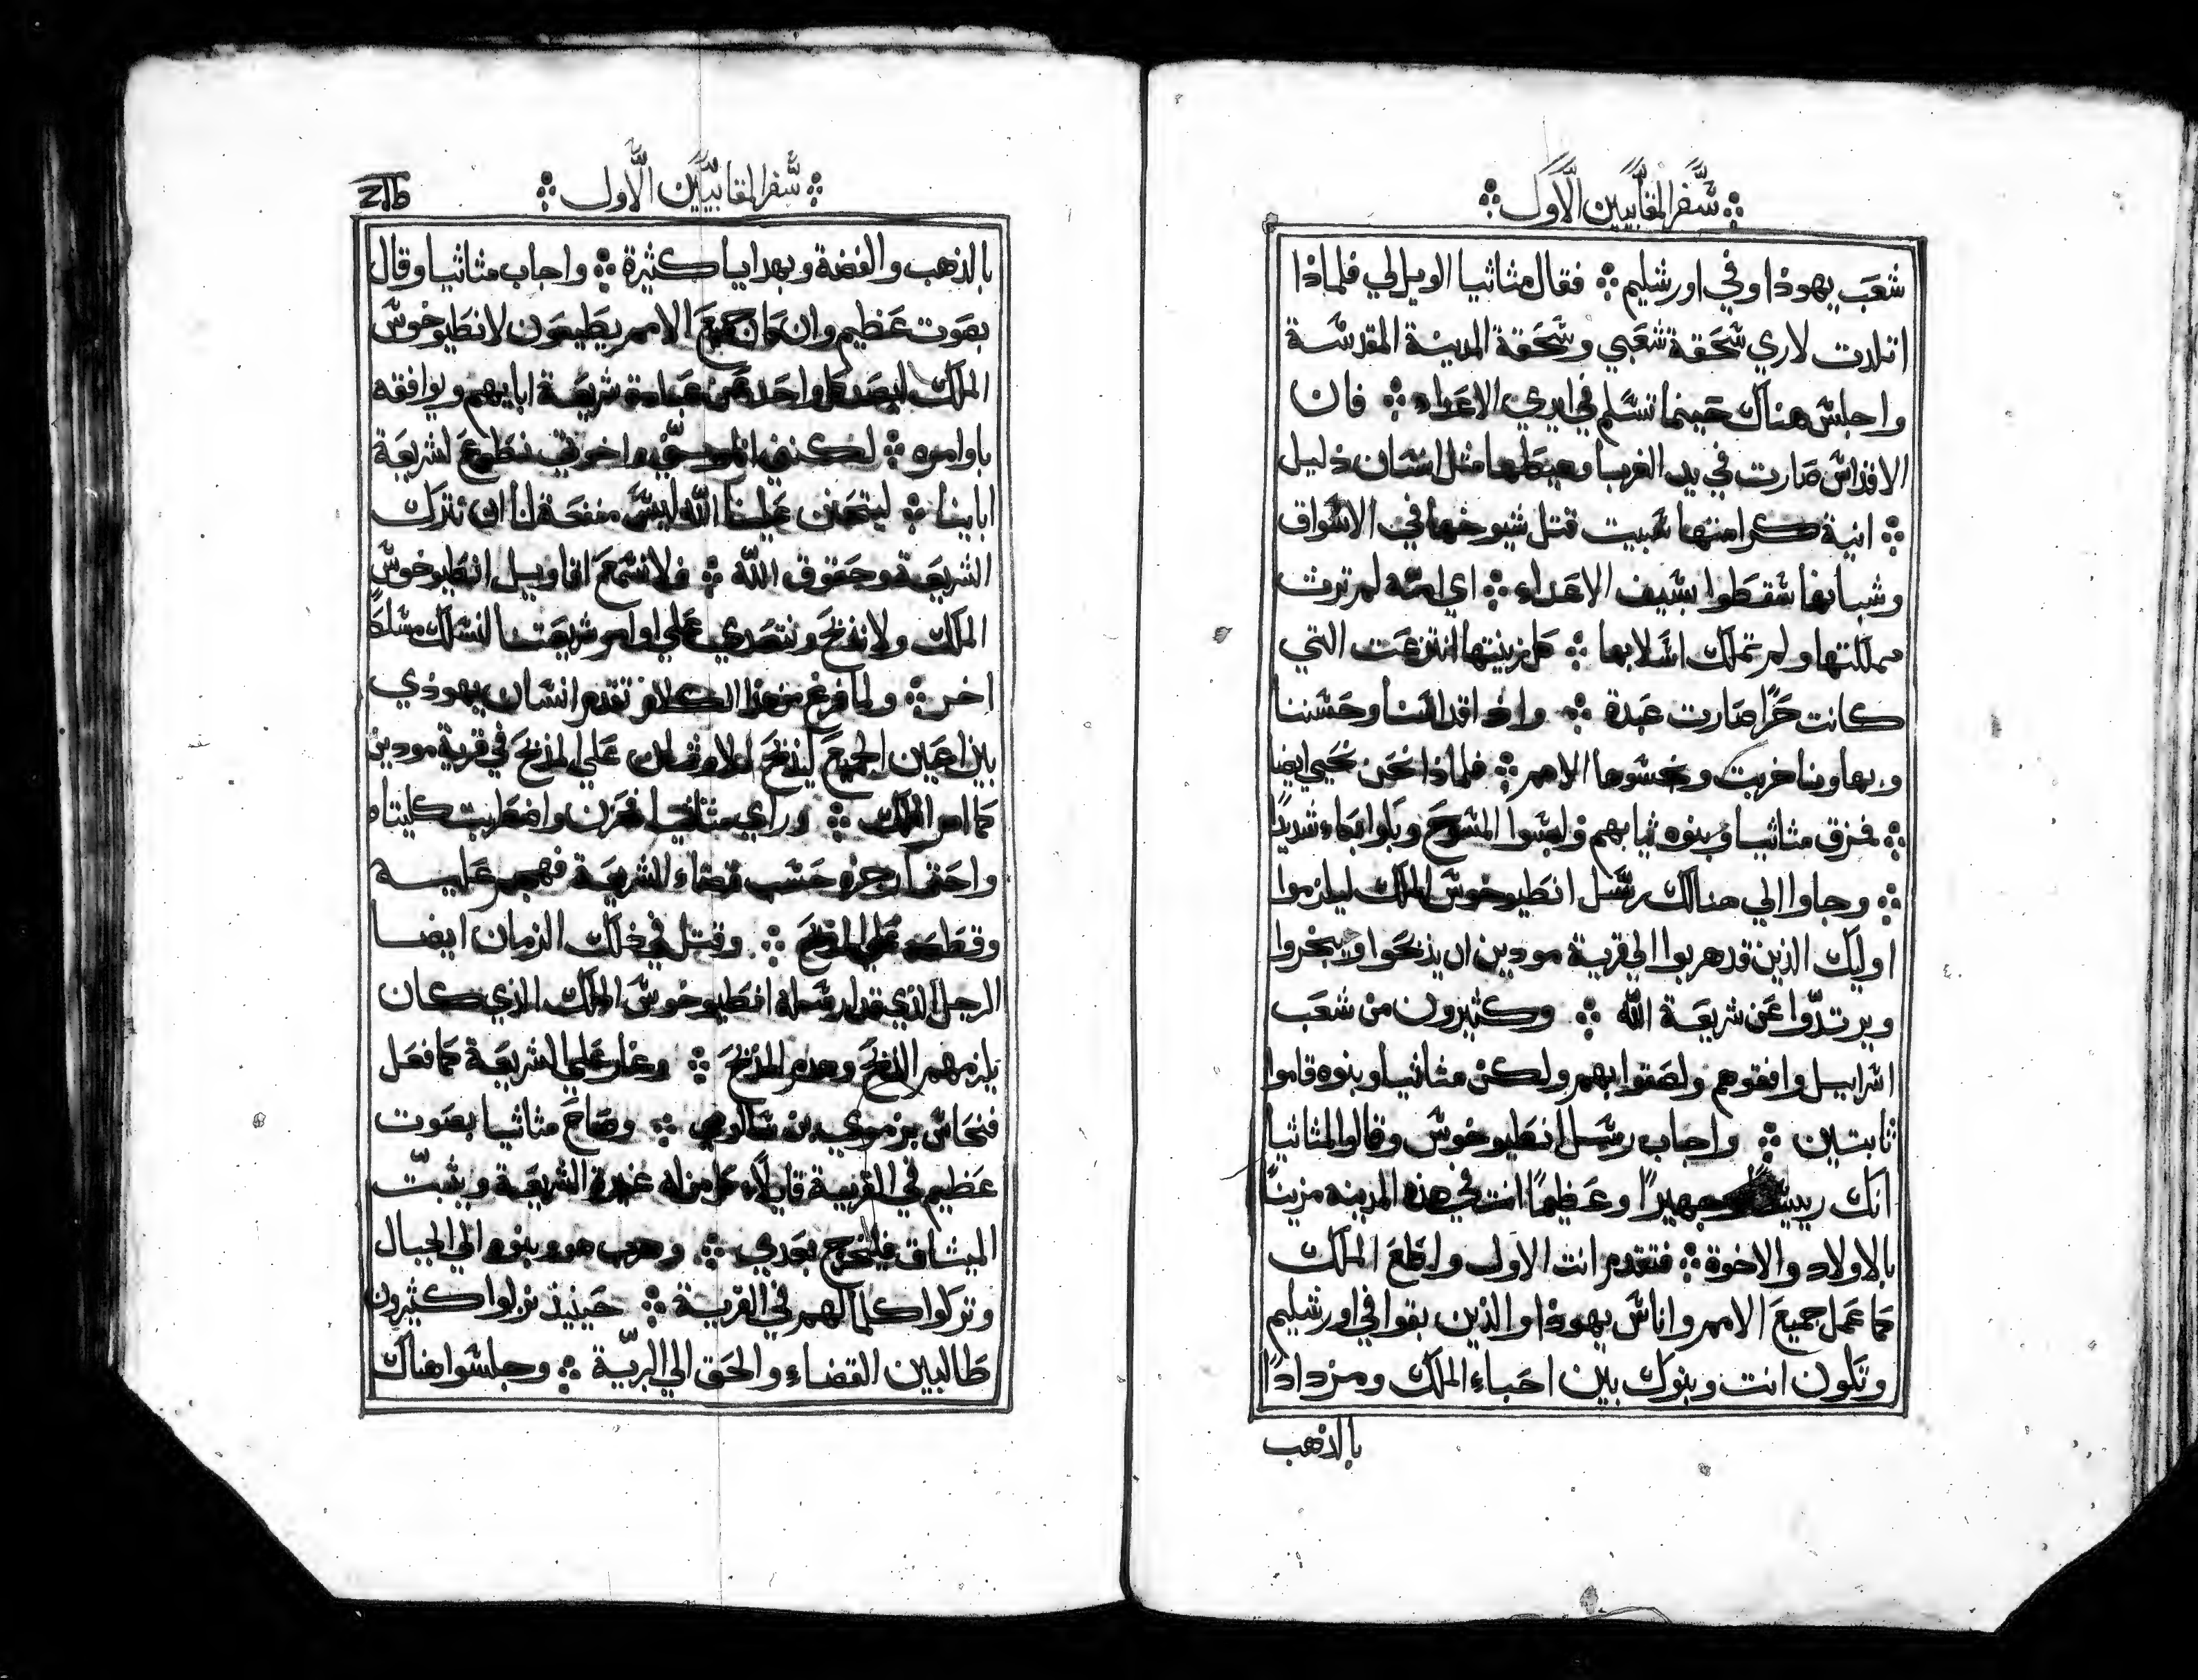 سفر المقابيين الاول
شعب يهوذا وفي اورشليم فقال مثاثيا الويل لي فلماذا
اتلدت لاري سحقة شعبي وسحقة المدينة المقدسة
واجلس هناك حينما تسلم في ايدي الاعداء فان
الاقداس صارت في يد الغربا وهيطلها مثل انسان ذليل
انية كرامتها سبيت قتل شيوخها في الاسواق
وشبابها سقطوا بسيف الاعداء اي امه لم ترث
مملكتها ولم تملك اسلابها كل زينتها انتزعت التي
كانت حرا صارت عبدة واذ اقداسنا وحسننا
وبهاونا خربت ونجسوها الامم فلماذا نحن نحيي ايضا
فمزق مثاثيا وبنوه ثيابهم ولبسوا المسوح وبكوا بكاء شديدا
وجاوا الي هنالك رسل انطيوخوس الملك ليلزموا
اوليك الذين قد هربوا الي قرية مودين ان يذبحوا ويبخروا
ويرتدوا عن شريعة الله وكثيرون من شعب
اسراييل وافقوهم ولصقوا بهم ولكن مثاثيا وبنوه قاموا
ثابتين واجاب رسل انطيوخوس وقالوا لمثاثيا
انك رييسا وجهيرا وعظيما انت في هذه المدينه مزينا
بالاولاد والاخوة فتقدم انت الاول واطع الملك
كما عمل جميع الامم واناس يهوذا والذين بقوا في اورشليم
وتكون انت وبنوك بين احباء الملك ومزدادا
بالذهب
سفر المقابيين الاول
بالذهب والفضة وبهدايا كثيرة واجاب مثاثيا وقال
بصوت عظيم وان كان جميع الامم يطيعون لانطيوخوس
الملك ليصد كل واحد عن عبادة شريعة ابايهم ويوافقه
باوامره لكنني انا وبني واخوتي نطوع لشريعة
اباينا ليتحنن علينا الله ليس منفعة لنا ان نترك
الشريعة وحقوق الله فلا نسمع اقاويل انطيوخوس
الملك ولا نذبح ونتعدي علي اوامر شريعتنا لنسلك مسلكا
اخر ولما فرغ من هذا الكلام تقدم انسان يهودي
بين اعين الجميع ليذبح للاوثان علي المذبح في قرية مودين
كما امر الملك وراي مثاثيا فحزن واضطربت كليتاه
واحتما رجزه حسب قضاء الشريعة فهجم عليه
وقطعه علي المذبح وقتل في ذلك الزمان ايضا
الرجل الذي قد ارسله انطيوخوس الملك الذي كان
يلزمهم الذبح وهدم المذبح وغار علي الشريعة كما فعل
فنحاس بزمري بن سالومي وصاح مثاثيا بصوت
عظيم في القرية قايلا كل من له غيرة الشريعة ويثبت
الميثاق فليخرج بعدي وهرب هو وبنوه الي الجبال
وتركوا كلما لهم في القرية حينيذ نزلوا كثيرون
طالبين القضاء والحق الي البرية وجلسوا هناك